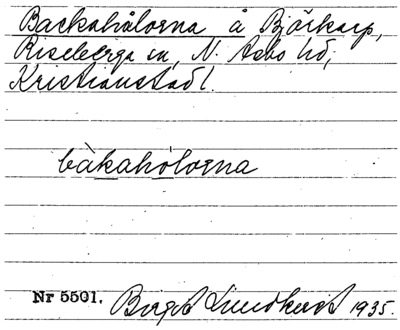 Backahålorna å Björkarp,
Riseberga sn, N. Åsbo hd,
Kristianstad l.
bàkahólorna
Nr 5501. Birgit Lundkvist 1935.